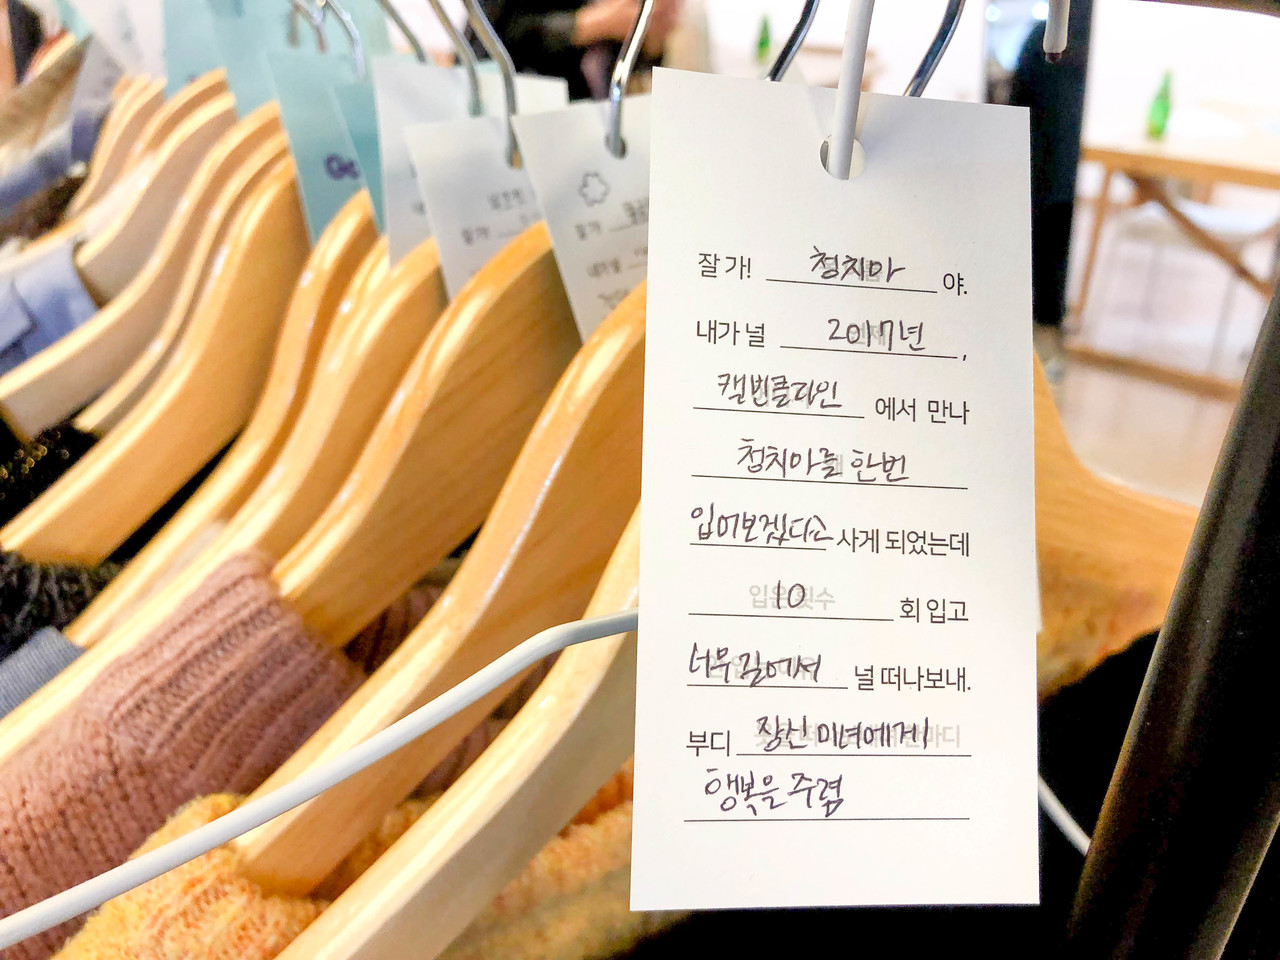 잘가! 청치마 야.
내가 널 2017년,
캘빈클라인 에서 만나
청치마를 한번
입어보겠다고 사게 되었는데
10 회 입고
너무 길어서 널 떠나보내.
부디 장신 미녀에게
행복을 주렴
잘가
내가 널
잘가